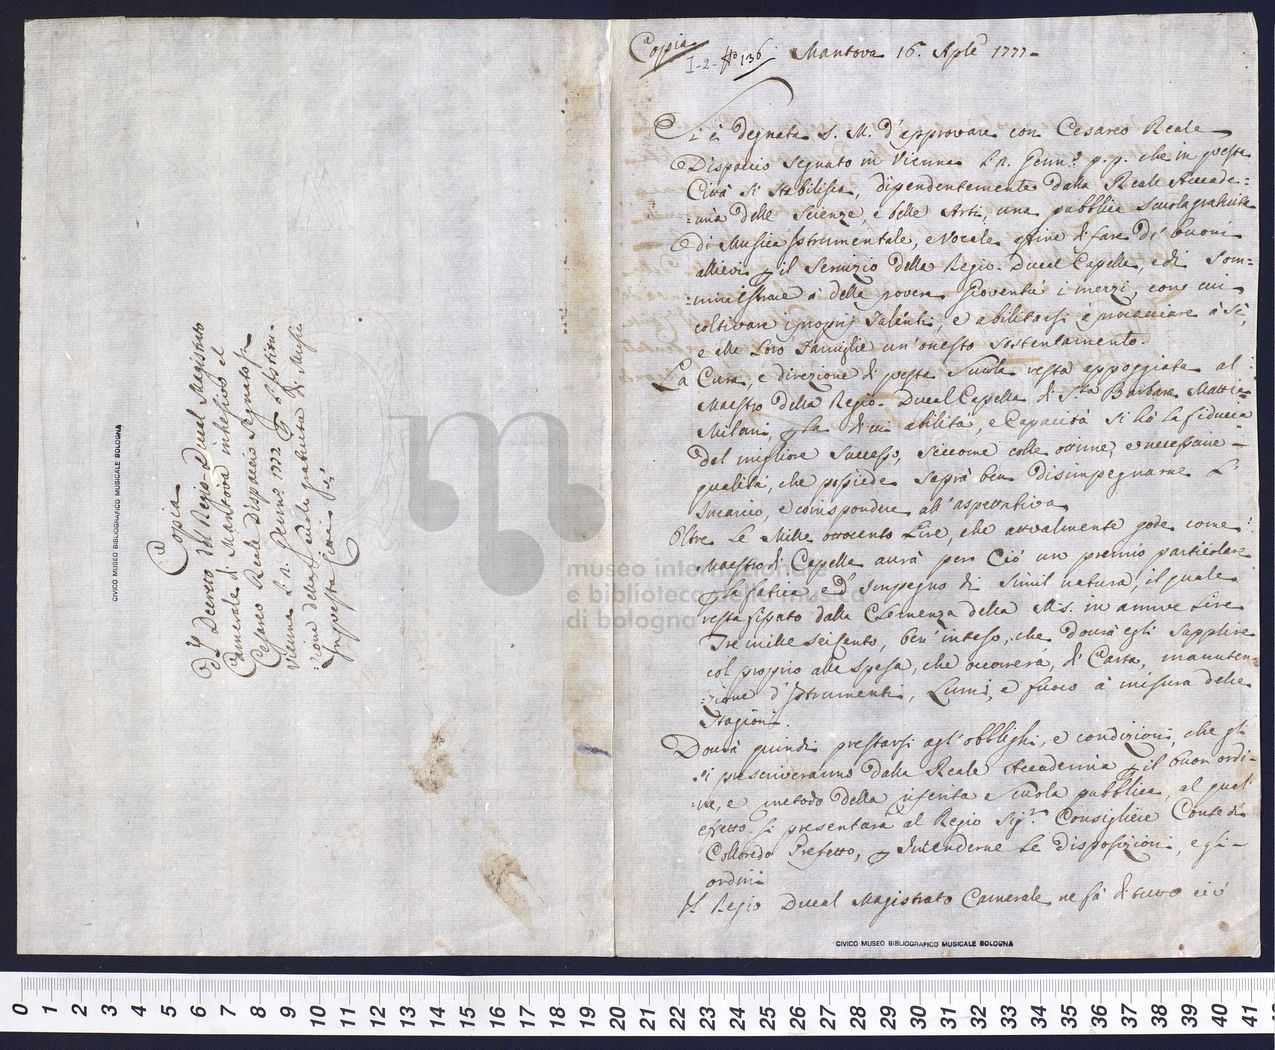 Copia
del Decreto del Regio-Ducal Magistrato
Camerale di Mantova inhesivo al
Cesareo Reale Dispaccio Segnato in
Vienna 2. Genno 1777
zione della Scuola gratuita di Musica
in questa Città
CIVICO MUSEO BIBLIOGRAFICO MUSICALE BOLOGNA
Copia
I-2- No 136 Mantova 16. Aple 1777-
Si è degnata S. M. d'approvare con Cesareo Reale
Dispaccio Segnato in Vienna 2. Genno. p. p. che in questa
Città si stabilisca, dipendentemente dalla Reale Accade:
:mia delle Scienze, e belle Arti, una pubblica Scuola gratuita
di Musica Istrumentale, e Vocale affine di fare de' buoni
allievi p il Servizio della Regio-Ducal Capella, e di Som=
:ministrare à della povera Gioventù i mezzi, con cui
coltivare i proprj Talenti, e abilitarsi à procacciare à Sè,
e alle Loro Famiglie un' onesto Sostentamento.
La Cura, e direzione di questa Scuola resta appoggiata al
Maestro della Regio-Ducal Capella di Sta Barbara Mattia
Milani, p la di cui abilità, e Capacità si hà la fiducia
del migliore Successo, siccome colle ottime, e necessarie
qualità, che possiede Saprà ben disimpegnarne L'
Incarico, e corrispondere all'aspettativa
Oltre Le Mille ottocento Lire, che attualmente gode come
Maestro di Capella avrà per Ciò un premio particolare
p la fatica ed Impegno di Simil natura, il quale
resta fissato dalla Clemenza della M.S. in annue Lire
Tre mille Seicento, ben' inteso, che dovrà egli Supplire
col proprio alle Spese, che occorrerà, di Carta, manuten=
:zione d'Istrumenti, Lumi, e fuoco à misura delle
Stagioni.
Dovrà quindi prestarsi agl'obblighi, e condizioni, che gli
si prescriveranno dalla Reale Accademia p il buon ordi=
ne, e metodo della riferita Scuola pubblica, al qual'
effetto si presenterà al Regio Sigr. Consigliere Conte di
Colloredo Prefetto, p Intenderne Le disposizioni, e gli
ordini
Il Regio Ducal Magistrato Camerale ne fà di tutto ciò
CIVICO MUSEO BIBLIOGRAFICO MUSICALE BOLOGNA
museo internazionale
e biblioteca della musica
di bologna
0 1 2 3 4 5 6 7 8 9 10 11 12 13 14 15 16 17 18 19 20 21 22 23 24 25 26 27 28 29 30 31 32 33 34 35 36 37 38 39 40 41